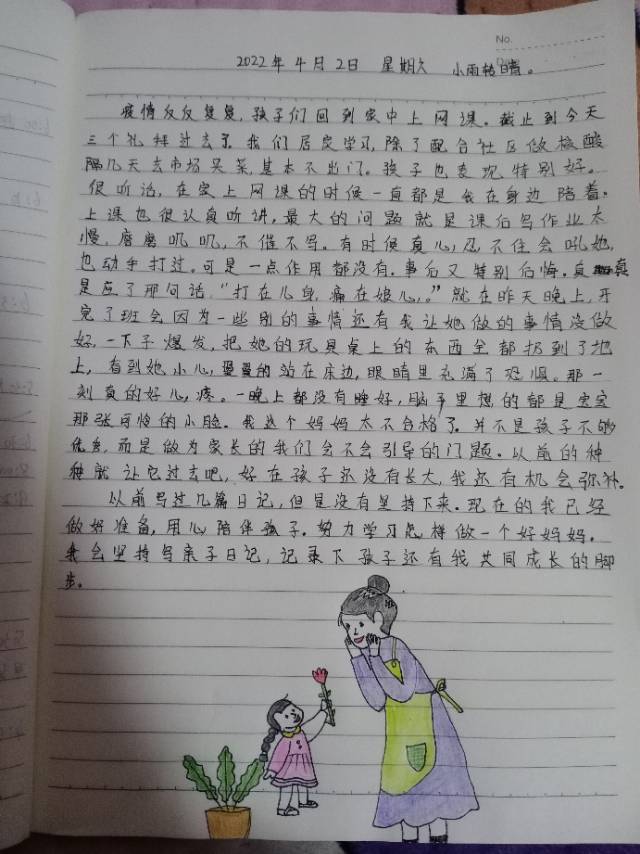 No.
2022年4月2日 星期六 小雨转晴。
疫情反反复复,孩子们回到家中上网课。截止到今天
三个礼拜过去了。我们居家学习,除了配合社区做核酸
隔几天去市场买菜,基本不出门。孩子也表现特别好。
很听话,在家上网课的时候一直都是我在身边陪着,
上课也很认真听讲,最大的问题就是课后写作业太
慢,磨磨叽叽,不催不写。有时候真心忍不住会吼她,
也动手打过。可是一点作用都没有。事后又特别后悔。真真
是应了那句话,“打在儿身,痛在娘心。”就在昨天晚上,开
完了班会因为一些别的事情还有我让她做的事情没做
好,一下子爆发,把她的玩具桌上的东西全都扔到了地
上,看到她小心,的站在床边,眼睛里充满了恐惧。那一
刻真的好心疼。一晚上都没有睡好,脑子里想的都是宝宝
那张可怜的小脸。我这个妈妈太不合格了。并不是孩子不够
优秀,而是做为家长的我们会不会引导的问题。以前的种
种就让它过去吧,好在孩子还没有长大,我还有机会弥补。
以前写过几篇日记,但是没有坚持下来。现在的我已经
做好准备,用心陪伴孩子。努力学习怎样做一个好妈妈。
我会坚持写亲子日记,记录下孩子还有我共同成长的脚
步。